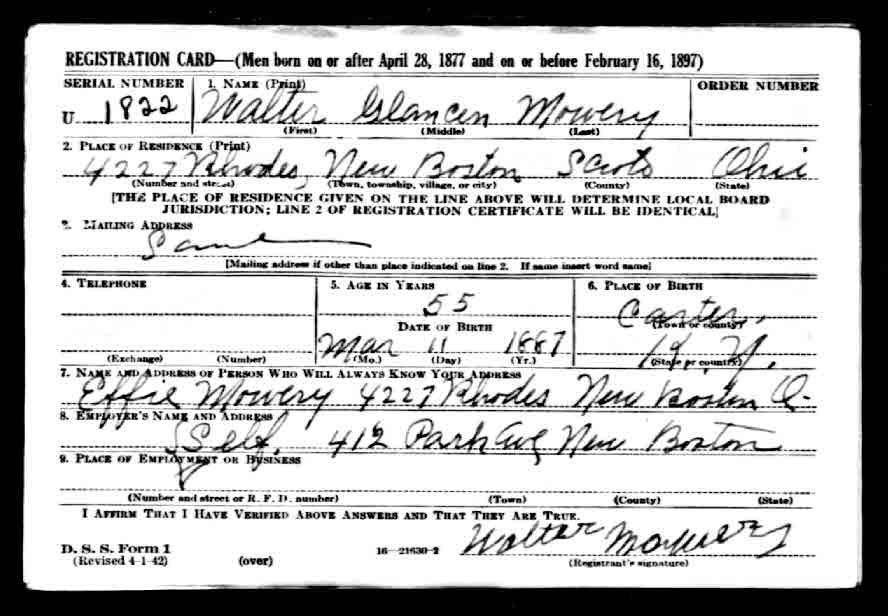 REGISTRATION CARD—(Men born on or after April 28, 1877 and on or before February 16, 1897)
SERIAL NUMBER 1. NAME (Print) ORDER NUMBER
U 1822 Walter Glancen Mowery
(First) (Middle) (Last)
2. PLACE OF RESIDENCE (Print)
4227 Rhodes, New Boston Scioto Ohio
(Number and street) (Town, township, village, or city) (County) (State)
[THE PLACE OF RESIDENCE GIVEN ON THE LINE ABOVE WILL DETERMINE LOCAL BOARD
JURISDICTION; LINE 2 OF REGISTRATION CERTIFICATE WILL BE IDENTICAL]
3. MAILING ADDRESS
Same
[Mailing address if other than place indicated on line 2. If same insert word same]
4. TELEPHONE 5. AGE IN YEARS 6. PLACE OF BIRTH
55 Carter,
DATE OF BIRTH (Town or county)
Mar 11 1887 Ky.
(Exchange) (Number) (Mo.) (Day) (Yr.) (State or country)
7. NAME AND ADDRESS OF PERSON WHO WILL ALWAYS KNOW YOUR ADDRESS
Effie Mowery 4227 Rhodes New Boston O-
8. EMPLOYER'S NAME AND ADDRESS
Self, 412 Park Ave New Boston
9. PLACE OF EMPLOYMENT OR BUSINESS
(Number and street or R. F. D. number) (Town) (County) (State)
I AFFIRM THAT I HAVE VERIFIED ABOVE ANSWERS AND THAT THEY ARE TRUE.
D. S. S. Form 1 16—21630-2 Walter Mowery
(Revised 4-1-42) (over) (Registrant's signature)